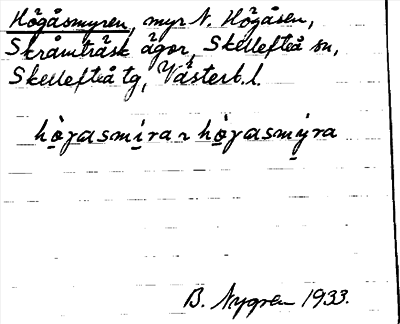 Högåsmyren, myr N. Högåsen,
Skråmträsk ägor, Skellefteå sn,
Skellefteå tg, Västerb. l.
hò̱gasmi̱ra ~ hò̱gasmý̱ra
B. Nygren 1933.